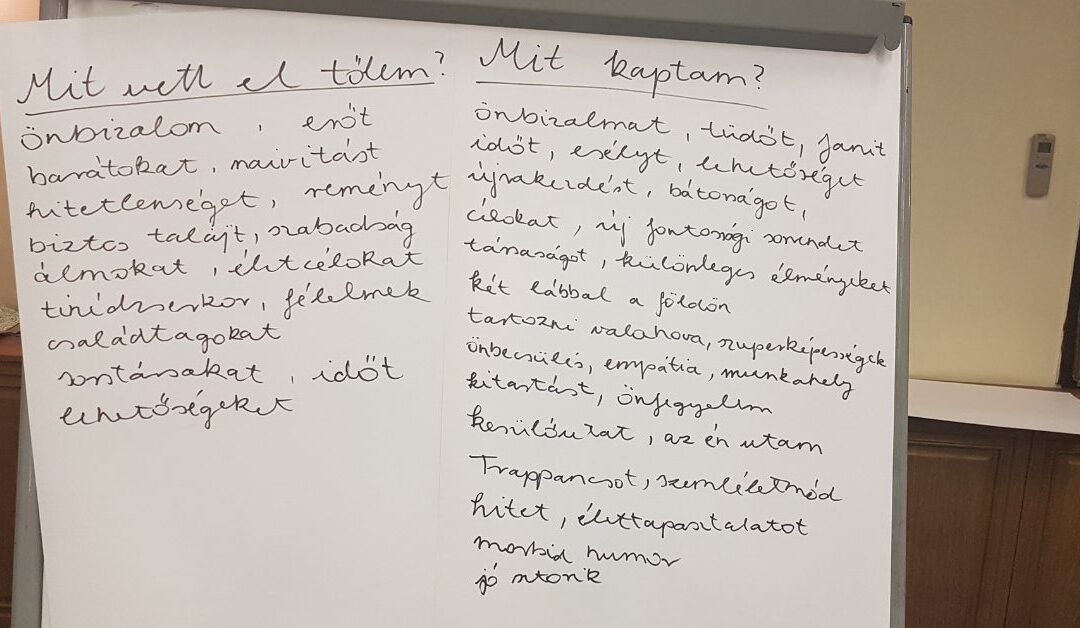 Mit vett el tőlem?
önbizalom, erőt
barátokat, naivitást
hitetlenséget, reményt
biztos talajt, szabadság
álmokat, életcélokat
tinédzserkor, félelmek
családtagokat
sorstársakat, időt
lehetőségeket
Mit kaptam?
önbizalmat, tüdőt, Janit
időt, esélyt, lehetőséget
újrakezdést, bátorságot,
célokat, új fontossági sorrendet
társaságot, különleges élményeket
két lábbal a földön
tartozni valahova, szuperképességek
önbecsülés, empátia, munkahely
kitartást, önfegyelem
kerülőutat, az én utam
Trappancsot, szemléletmód
hitet, élettapasztalatot
morbid humor
jó sztorik